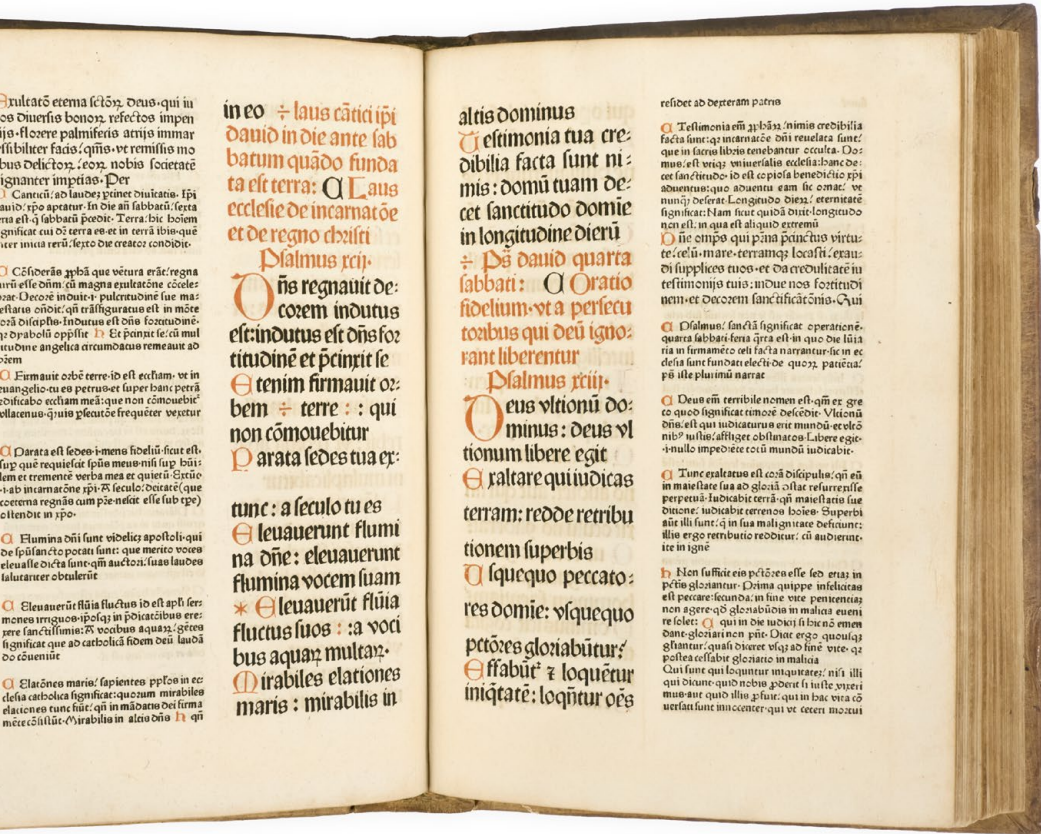 Exultatõ eterna sctõꝝ deus·qui iu
os diuersis bonoꝝ refectos impen
ijs·florere palmiferis atrijs immar
ssibiliter facis:q̃ms·vt remissis mo
bus delictoꝝ:eoꝝ nobis societatẽ
ignanter imptias·Per
Canticũ:ad laudeꝫ ꝑtinet diuitatis·Ipi
auid·xp̃o aptatur·In die añ sabbatũ:sexta
eria est·q̃ sabbatũ p̃cedit·Terra:hic hoiem
gnificat cui d̃r terra es·et in terrã ibis·quẽ
nter inicia rerũ:sexto die creator condidit·
Cõsiderãs ꝓphã que vẽtura erãt:regna
urũ esse dñm:cũ magna exultatõne cõcele-
rat·Decorẽ induit·i·pulcritudinẽ sue ma-
estatis oñdit:qñ trãsfiguratus est in mõte
orã disciplis·Indutus est dñs fortitudinẽ·
qꝛ dyabolũ opp̃ssit Et p̃cinxit se:cũ mul
itudine angelica circumdatus remeauit ad
Firmauit orbẽ terre·id est ecclam·vt in
euangelio·tu es petrus·et super hanc petrã
edificabo ecclam meã:que non cõmouebitᷣ
vllatenus·q̃uis ꝑsecutõe frequẽter vexetur
Parata est sedes·i·mens fidelium·sicut est·
suꝑ quẽ requiescit spũs meus·nisi suꝑ hũi-
lem et trementẽ verba mea et quietũ·Extũc
·i·ab incarnatõne xp̃i·A seculo:deitatẽ(que
coeterna regnãs cum pr̃e·nescit esse sub tp̃e)
ostendit in xp̃o·
Flumina dñi sunt videlicꝫ apostoli·qui
de spũsancto potati sunt: que merito voces
eleuasse dicta sunt·qm̃ auctori:suas laudes
salutariter obtulerũt
Eleuauerũt flũia fluctus id est apl̃i ser-
mones irriguos·ip̃osqꝫ in p̃dicatõibus ere-
xere sanctissimis:A vocibus aquaꝝ:gẽtes
significat que ad catholicã fidem deũ laudã
do cõueniũt
Elatõnes maris:sapientes pp̃los in ec
clesia catholica significat:quorum mirabiles
elationes tunc fiũt:qñ in mãdatis dei firma
mẽte cõsistũt·Mirabilis in altis dñs qñ
in eo ÷ laus cãtici ip̃i
dauid in die ante sab
batum quãdo funda
ta est terra: Laus
ecclesie de incarnatõe
et de regno christi
Psalmus xcij·
Dñs regnauit de-
corem indutus
est:indutus est dñs for
titudinẽ et p̃cinxit se
Etenim firmauit or-
bem ÷ terre : : qui
non cõmouebitur
Parata sedes tua ex-
tunc : a seculo tu es
Eleuauerunt flumi
na dñe: eleuauerunt
flumina vocem suam
* Eleuauerũt flũia
fluctus suos : :a voci
bus aquaꝝ multaꝝ·
Mirabiles elationes
maris : mirabilis in
altis dominus
Testimonia tua cre-
dibilia facta sunt ni-
mis: domũ tuam de-
cet sanctitudo domĩe
in longitudine dierũ
÷ Ps̃ dauid quarta
sabbati: Oratio
fidelium·vt a persecu
toribus qui deũ igno-
rant liberentur
Psalmus xciij·
Deus vltionũ do-
minus : deus vl
tionum libere egit
Exaltare qui iudicas
terram: redde retribu
tionem superbis
Usquequo peccato-
res domĩe: vsquequo
pctõres gloriabũtur:
Effabũtᷣ ⁊ loquẽtur
iniq̃tatẽ: loqñtur oẽs
residet ad dexteram patris
Testimonia em̃ ꝓphãꝝ:nimis credibilia
facta sunt:qꝛ incarnatõe dñi reuelata sunt:
que in sacris libris tenebantur occulta·Do-
mus:est vtiqꝫ vniuersalis ecclesia:hanc de-
cet sanctitudo·id est copiosa benedictio xp̃i
aduentus:quo aduentu eam sic ornat: vt
nunqꝫ deserat·Longitudo dierꝫ: eternitatẽ
significat:Nam sicut quidã dixit·longitudo
non est:in qua est aliquid extremũ
Dñe omp̃s qui p̃ma p̃cinctus virtu-
te:celũ·mare·terramqꝫ locasti:exau-
di supplices tuos·et da credulitatẽ in
testimonijs tuis:indue nos fortitudi
nem·et decorem sanctificatõnis·Qui
Psalmus: sanctã significat operationẽ·
quarta sabbati·feria q̃rta est·in quo die lũia
ria in firmamẽto celi facta narrantur·sic in ec
clesia sunt fundati electi·de quoꝝ patiẽtia:
ps̃ iste plurimũ narrat
Deus em̃ terribile nomen est·qm̃ ex gre
co quod significat timorẽ descẽdit·Vltionũ
dñs:est qui iudicaturus erit mundũ·et vltõ
nibꝰ iustis:affliget obstinatos·Libere egit·
·i·nullo impediẽte totũ mundũ iudicabit·
Tunc exaltatus est corã discipulis:qñ eũ
in maiestate sua ad gloriã ostat resurrexisse
perpetuã·Iudicabit terrã·qñ maiestatis sue
ditione: iudicabit terrenos hoĩes·Superbi
aũt illi sunt:q̃ in sua malignitate deficiunt:
illis ergo retributio redditur: cũ audierunt·
ite in ignẽ
Non sufficit eis pctõres esse sed etiaꝫ in
pctĩs gloriantur·Prima quippe infelicitas
est peccare:secunda:in fine vite penitentiaꝫ
non agere·qd̃ gloriabũdis in malicia eueni
re solet: qui in die iudicij si hic nõ emen
dant·gloriari non pñt·Dicat ergo quousqꝫ
gl̃iantur:quasi diceret vsqꝫ ad finẽ vite·qꝛ
postea cessabit gloriatio in malicia
Qui sunt qui loquntur iniquitateꝫ: nisi illi
qui dicunt·quid nobis ꝓderit si iuste vixeri
mus·aut quid illis ꝓfuit·qui in hac vita cõ
uersati sunt innocenter·qui vt ceteri mortui